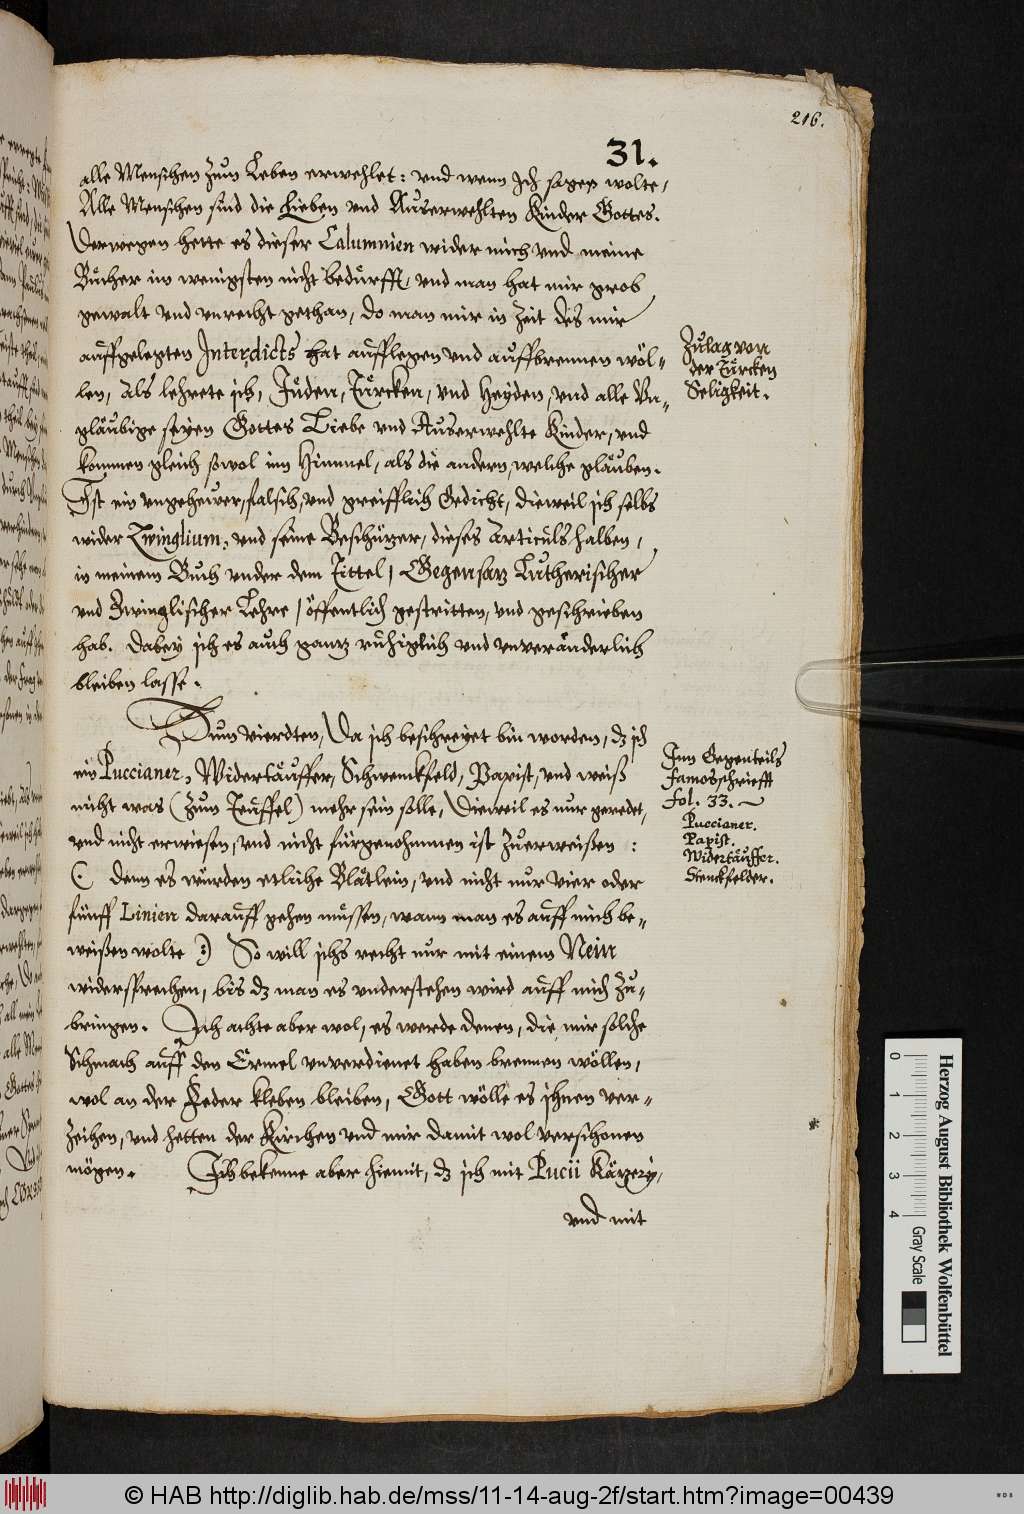 216.
31.
alle Menschen zum Leben erwehlet: vnd wenn Ich sagen wolte,
Alle Menschen sind die Lieben vnd Auserwehlten Kinder Gottes.
Derwegen hette es dieser Calumnien wider mich vnd meine
Bücher im wenigsten nicht bedurfft, vnd man hat mir grob
gewalt vnd vnrecht gethan, do man mir in Zeit des mir
auffgelegten Interdicts hat aufflegen vnd auffbrennen wöl-
len, als lehrete ich, Jüden, Türcken, vnd Heyden, vnd alle Vn-
gläubige seyen Gottes Liebe vnd Auserwehlte Kinder, vnd
kommen gleich sowol inn Himmel, als die andern, welche glauben.
Ist ein vngeheuwer, falsch, vnd greifflich Gedicht, dieweil ich selbs
wider Zwinglium, vnd seine Beschützer, dieses Articuls halben,
in meinem Buch vnder dem Tittel, Gegensatz Lutherischer
vnd Zwinglischer Lehre, öffentlich gestritten, vnd geschrieben
hab. Dabey ich es auch gantz ruhiglich vnd vnveränderlich
bleiben lasse.
Zulag von
der Türcken
Seligkeit.
Zum vierdten, Da ich beschreyet bin worden, dz ich
ein Puccianer, Widertäuffer, Schwenckfeld, Papist, vnd weiß
nicht was (zum Teuffel) mehr sein solle, Dieweil es nur geredet,
vnd nicht erwiesen, vnd nicht fürgenohmmen ist zuerweißen :
(: denn es würden etliche Blätlein, vnd nicht nur vier oder
fünff Linien darauff gehen müssen, wann man es auff mich be-
weißen wolte :) So will ichs recht nur mit einem Nein
widersprechen, bis dz man es vnderstehen wird auff mich zu-
bringen. Ich achte aber wol, es werde denen, die mir solche
Schmach auff den Ermel vnverdienet haben brennen wöllen,
wol an der Feder kleben bleiben, Gott wölle es ihnen ver-
zeihen, vnd hetten der Kirchen vnd mir damit wol verschonen
mögen. Ich bekenne aber hiemit, dz ich mit Pucii Kätzery,
vnd mit
Inn Gegenteils
famosschrifft
fol. 33.
Puccianer.
Papist.
Widertäuffer.
Stenckfelder.
Herzog August Bibliothek Wolfenbüttel
0 1 2 3 4
Gray Scale
© HAB http://diglib.hab.de/mss/11-14-aug-2f/start.htm?image=00439